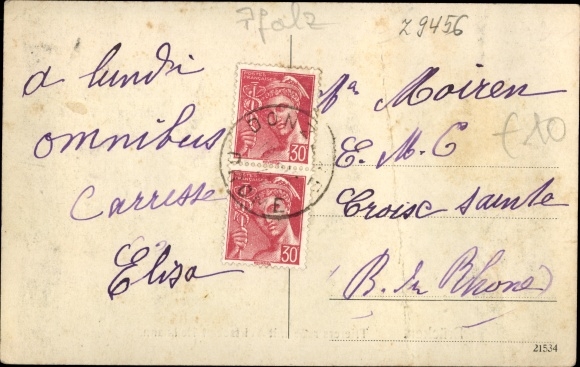 Pfalz
Z 9456
a lundi
omnibus
Carresse
Eliza
POSTES FRANÇAISES
30
POSTES FRANÇAISES
30
Moiren
E. M. C
Croisc Sainte
B. du Rhone
€10
21534